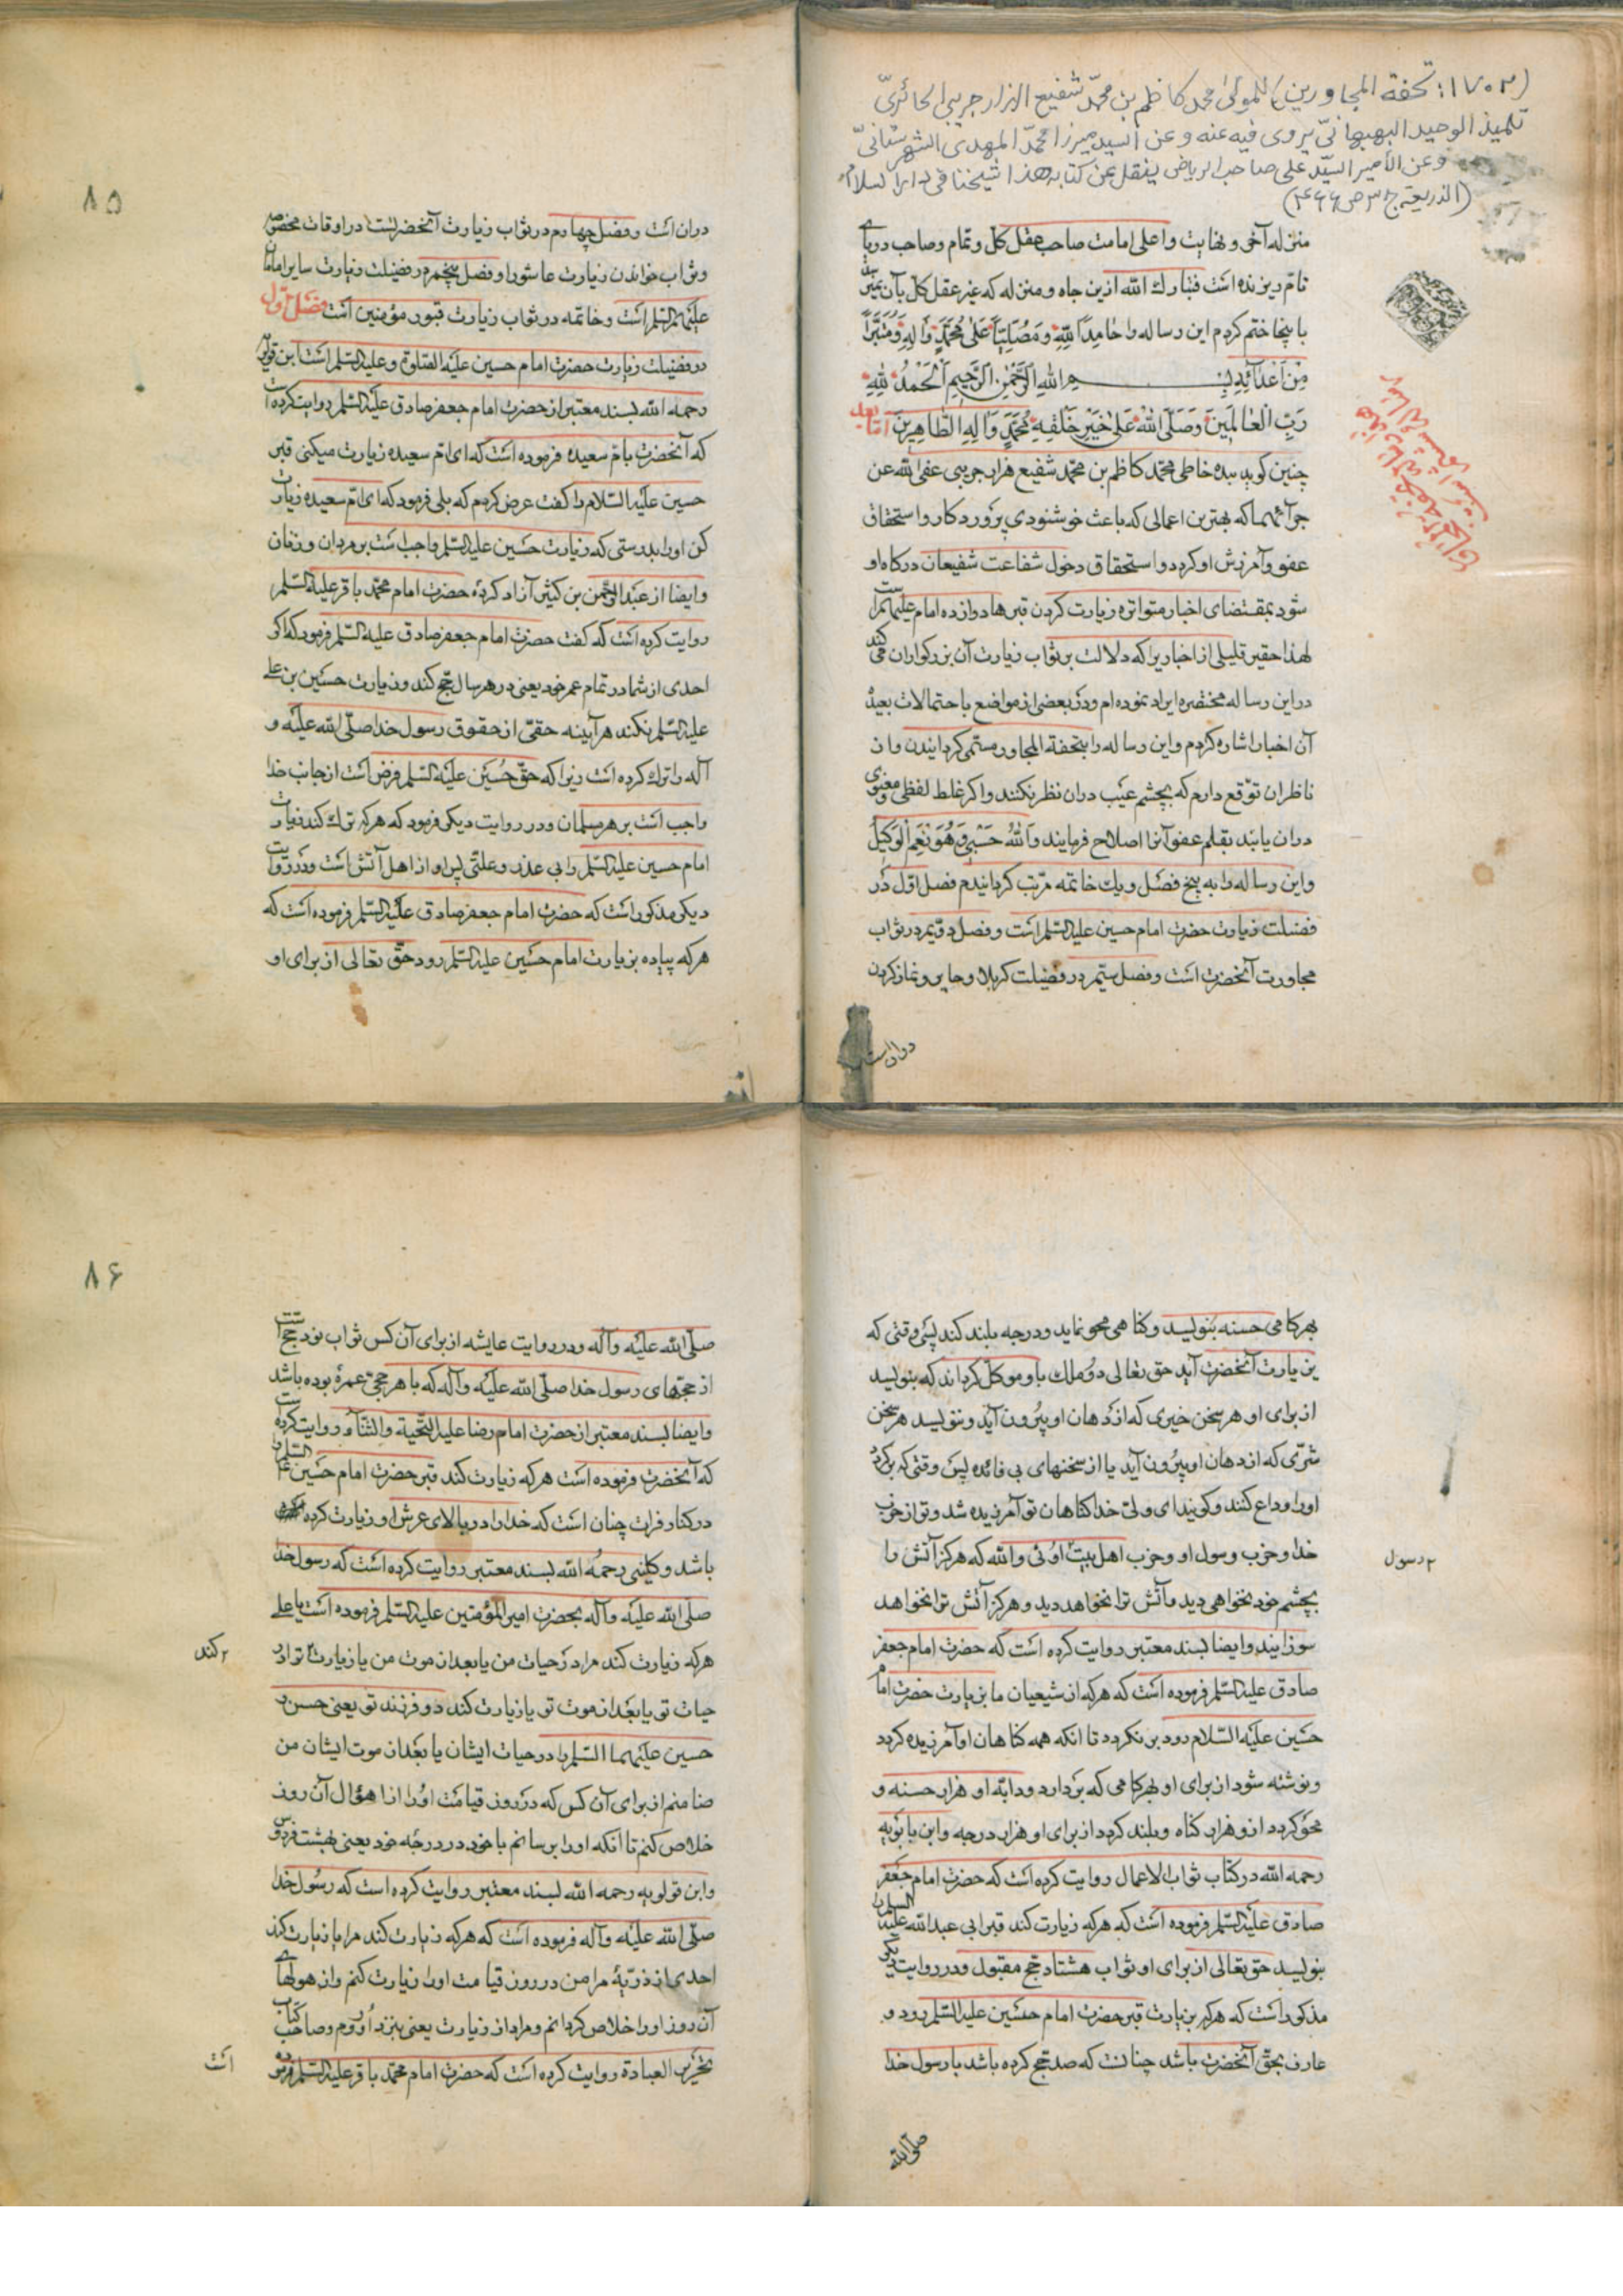 (۱۷۰۲: تحفة المجاورین) للمولی محمد کاظم بن محمد شفیع الهزارجریبی الحائری
تلمیذ الوحید البهبهانی یروی فیه عنه و عن السید میرزا محمد المهدی الشهرستانی
و عن الأمیر السید علی صاحب الریاض ینقل عن کتابه هذا شیخنا فی دار السلام
(الذریعة ج۳ ص ۴۶۶)
منزله آخی و نهایت و اعلی امامت صاحب عقل کل و تمام و صاحب دریای
تام دیزنده است فتبارك الله ازین جاه و منزله که غیر عقل کل بآن نمیرسد
باینجا ختم کردم این رساله را حامِداً لِلّهِ و مُصَلِّیاً عَلی مُحَمَّدٍ وَ الِهِ وَ مُتَبَرِّاً
مِن اَعْدآئِهِ بِسْمِ اللهِ الرَّحْمٰنِ الرَّحیمِ اَلْحَمْدُ لِلّهِ
رَبِّ الْعالَمینَ وَ صَلَّی اللهُ عَلی خَیْرِ خَلْقِهِ مُحَمَّدٍ وَ الِهِ الطّاهِرینَ امّا بعد
چنین کوید بنده خاطی محمد کاظم بن محمد شفیع هزارجریبی عفی الله عن
جرآئمهما که بهترین اعمالی که باعث خوشنودی پروردکار و استحقاق
عفو و آمرزش او کردد و استحقاق دخول شفاعت شفیعان درکاه او
شود بمقتضای اخبار متواتره زیارت کردن قبرها دوازده امام علیهم السلام است
لهذا حقیر قلیلی از اخباریرا که دلالت بر ثواب زیارت آن بزرکواران می کند
در این رساله مختصره ایراد نموده ام و در بعضی از مواضع باحتمالات بعیدهٔ
آن اخبار اشاره کردم و این رساله را بتحفة المجاور مسمّی کردانیدن و از
ناظران توقع دارم که بچشم عیب در آن نظر نکنند و اکر غلط لفظی و معنوی
در آن یابند بقلم عفو آنرا اصلاح فرمایند وَ اللهُ حَسْبی وَ هُوَ نِعْمَ الْوَکیلُ
و این رساله را به پنج فصل و یك خاتمه مرتب کردانیدم فصل اوّل در
فضیلت زیارت حضرت امام حسین علیه السلم است و فصل دویم در ثواب
مجاورت آنحضرت است و فصل سیم در فضیلت کربلا و حایر و نماز کردن
در ان است
۸۵
در ان است و فصل چهارم در ثواب زیارت آنحضرتست در اوقات مخصوصه
و ثواب خواندن زیارت عاشورا و فصل پنجم در فضیلت زیارت سایر امامان
علیهم السلم است و خاتمه در ثواب زیارت قبور مؤمنین است فصل اول
در فضیلت زیارت حضرت امام حسین علیه الصلوة و علیه السلم است ابن قولویه
رحمه الله بسند معتبر از حضرت امام جعفر صادق علیه السلم روایت کرده است
که آنحضرت بام سعیده فرموده است که ای ام سعیده زیارت میکنی قبر
حسین علیه السلام را کفت عرض کردم که بلی فرمود که ای ام سعیده زیارت
کن او را بدرستی که زیارت حسین علیه السلم واجب است بر مردان و زنان
و ایضا از عبد الرحمن بن کثیر آزاد کردهٔ حضرت امام محمد باقر علیه السلم
روایت کرده است که کفت حضرت امام جعفر صادق علیه السلم فرمود که اکر
احدی از شما در تمام عمر خود یعنی در هر سال حج کند و زیارت حسین بن علی
علیه السلم نکند هر آینه حقی از حقوق رسول خدا صلّی الله علیه و
آله را ترك کرده است زیرا که حقّ حسین علیه السلم فرض است از جانب خدا
واجب است بر هر مسلمان و در روایت دیکر فرمود که هر که ترك کند زیارت
امام حسین علیه السلم را بی عذر و علّتی پس او از اهل آتش است و در روایت
دیکر مذکور است که حضرت امام جعفر صادق علیه السلم فرموده است که
هر که پیاده بزیارت امام حسین علیه السلم رود حق تعالی از برای او
بهر کامی حسنه بنویسد و کناهی محو نماید و درجه بلند کند پس وقتی که
بزیارت آنحضرت آید حق تعالی دو ملك باو موکل کرداند که بنویسد
از برای او هر سخن خیری که از دهان او بیرون آید و ننویسد هر سخن
شرّی که از دهان او بیرون آید یا از سخنهای بی فائده پس وقتی که برکردد
او را وداع کنند و کویند ای ولیّ خدا کناهان تو آمرزیده شد و تو از حزب
خدا و حزب رسول او و حزب اهل بیت اوئی و الله که هرکز آتش را
۲ رسول
بچشم خود نخواهی دید و آتش ترا نخواهد دید و هرکز آتش ترا نخواهد
سوزانید و ایضا بسند معتبر روایت کرده است که حضرت امام جعفر
صادق علیه السلم فرموده است که هر که از شیعیان ما بزیارت حضرت امام
حسین علیه السلام رود بر نکردد تا آنکه همه کناهان او آمرزیده کردد
و نوشته شود از برای او بهر کامی که بردارد و دابّه او هزار حسنه و
محو کردد از و هزار کناه و بلند کردد از برای او هزار درجه و ابن بابویه
رحمه الله در کتاب ثواب الاعمال روایت کرده است که حضرت امام جعفر
صادق علیه السلم فرموده است که هر که زیارت کند قبر ابی عبد الله علیه السلم را
بنویسد حق تعالی از برای او ثواب هشتاد حج مقبول و در روایت دیکر
مذکور است که هر که بزیارت قبر حضرت امام حسین علیه السلم رود و
عارف بحق آنحضرت باشد چنانست که صد حج کرده باشد با رسول خدا
صلی الله
۸۶
صلّی الله علیه و آله و در روایت عایشه از برای آن کس ثواب نود حج است
از حجهای رسول خدا صلّی الله علیه و آله که با هر حجی عمرهٔ بوده باشد
و ایضا بسند معتبر از حضرت امام رضا علیه التحیة و الثناء روایت کرده است
که آنحضرت فرموده است هر که زیارت کند قبر حضرت امام حسین علیه السلم را
در کنار فرات چنان است که خدا را در بالای عرش او زیارت کرده
باشد و کلینی رحمه الله بسند معتبر روایت کرده است که رسول خدا
صلّی الله علیه و آله بحضرت امیر المؤمنین علیه السلم فرموده است یا علی
هر که زیارت کند مرا در حیات من یا بعد از موت من یا زیارت ترا در
۲ کند
حیات تو یا بعد از موت تو یا زیارت کند دو فرزند تو یعنی حسن و
حسین علیهما السلم را در حیات ایشان یا بعد از موت ایشان من
ضامنم از برای آن کس که در روز قیامت او را از اهوال آن روز
خلاص کنم تا آنکه او را برسانم با خود در درجه خود یعنی بهشت فردوس
و ابن قولویه رحمه الله بسند معتبر روایت کرده است که رسول خدا
صلّی الله علیه و آله فرموده است که هر که زیارت کند مرا یا زیارت کند
احدی از ذریّهٔ مرا من در روز قیامت او را زیارت کنم و از هولهای
آن روز او را خلاص کردانم و مراد از زیارت یعنی بنزد او روم و صاحب کتاب
تحریر العبادة روایت کرده است که حضرت امام محمد باقر علیه السلم فرموده
است